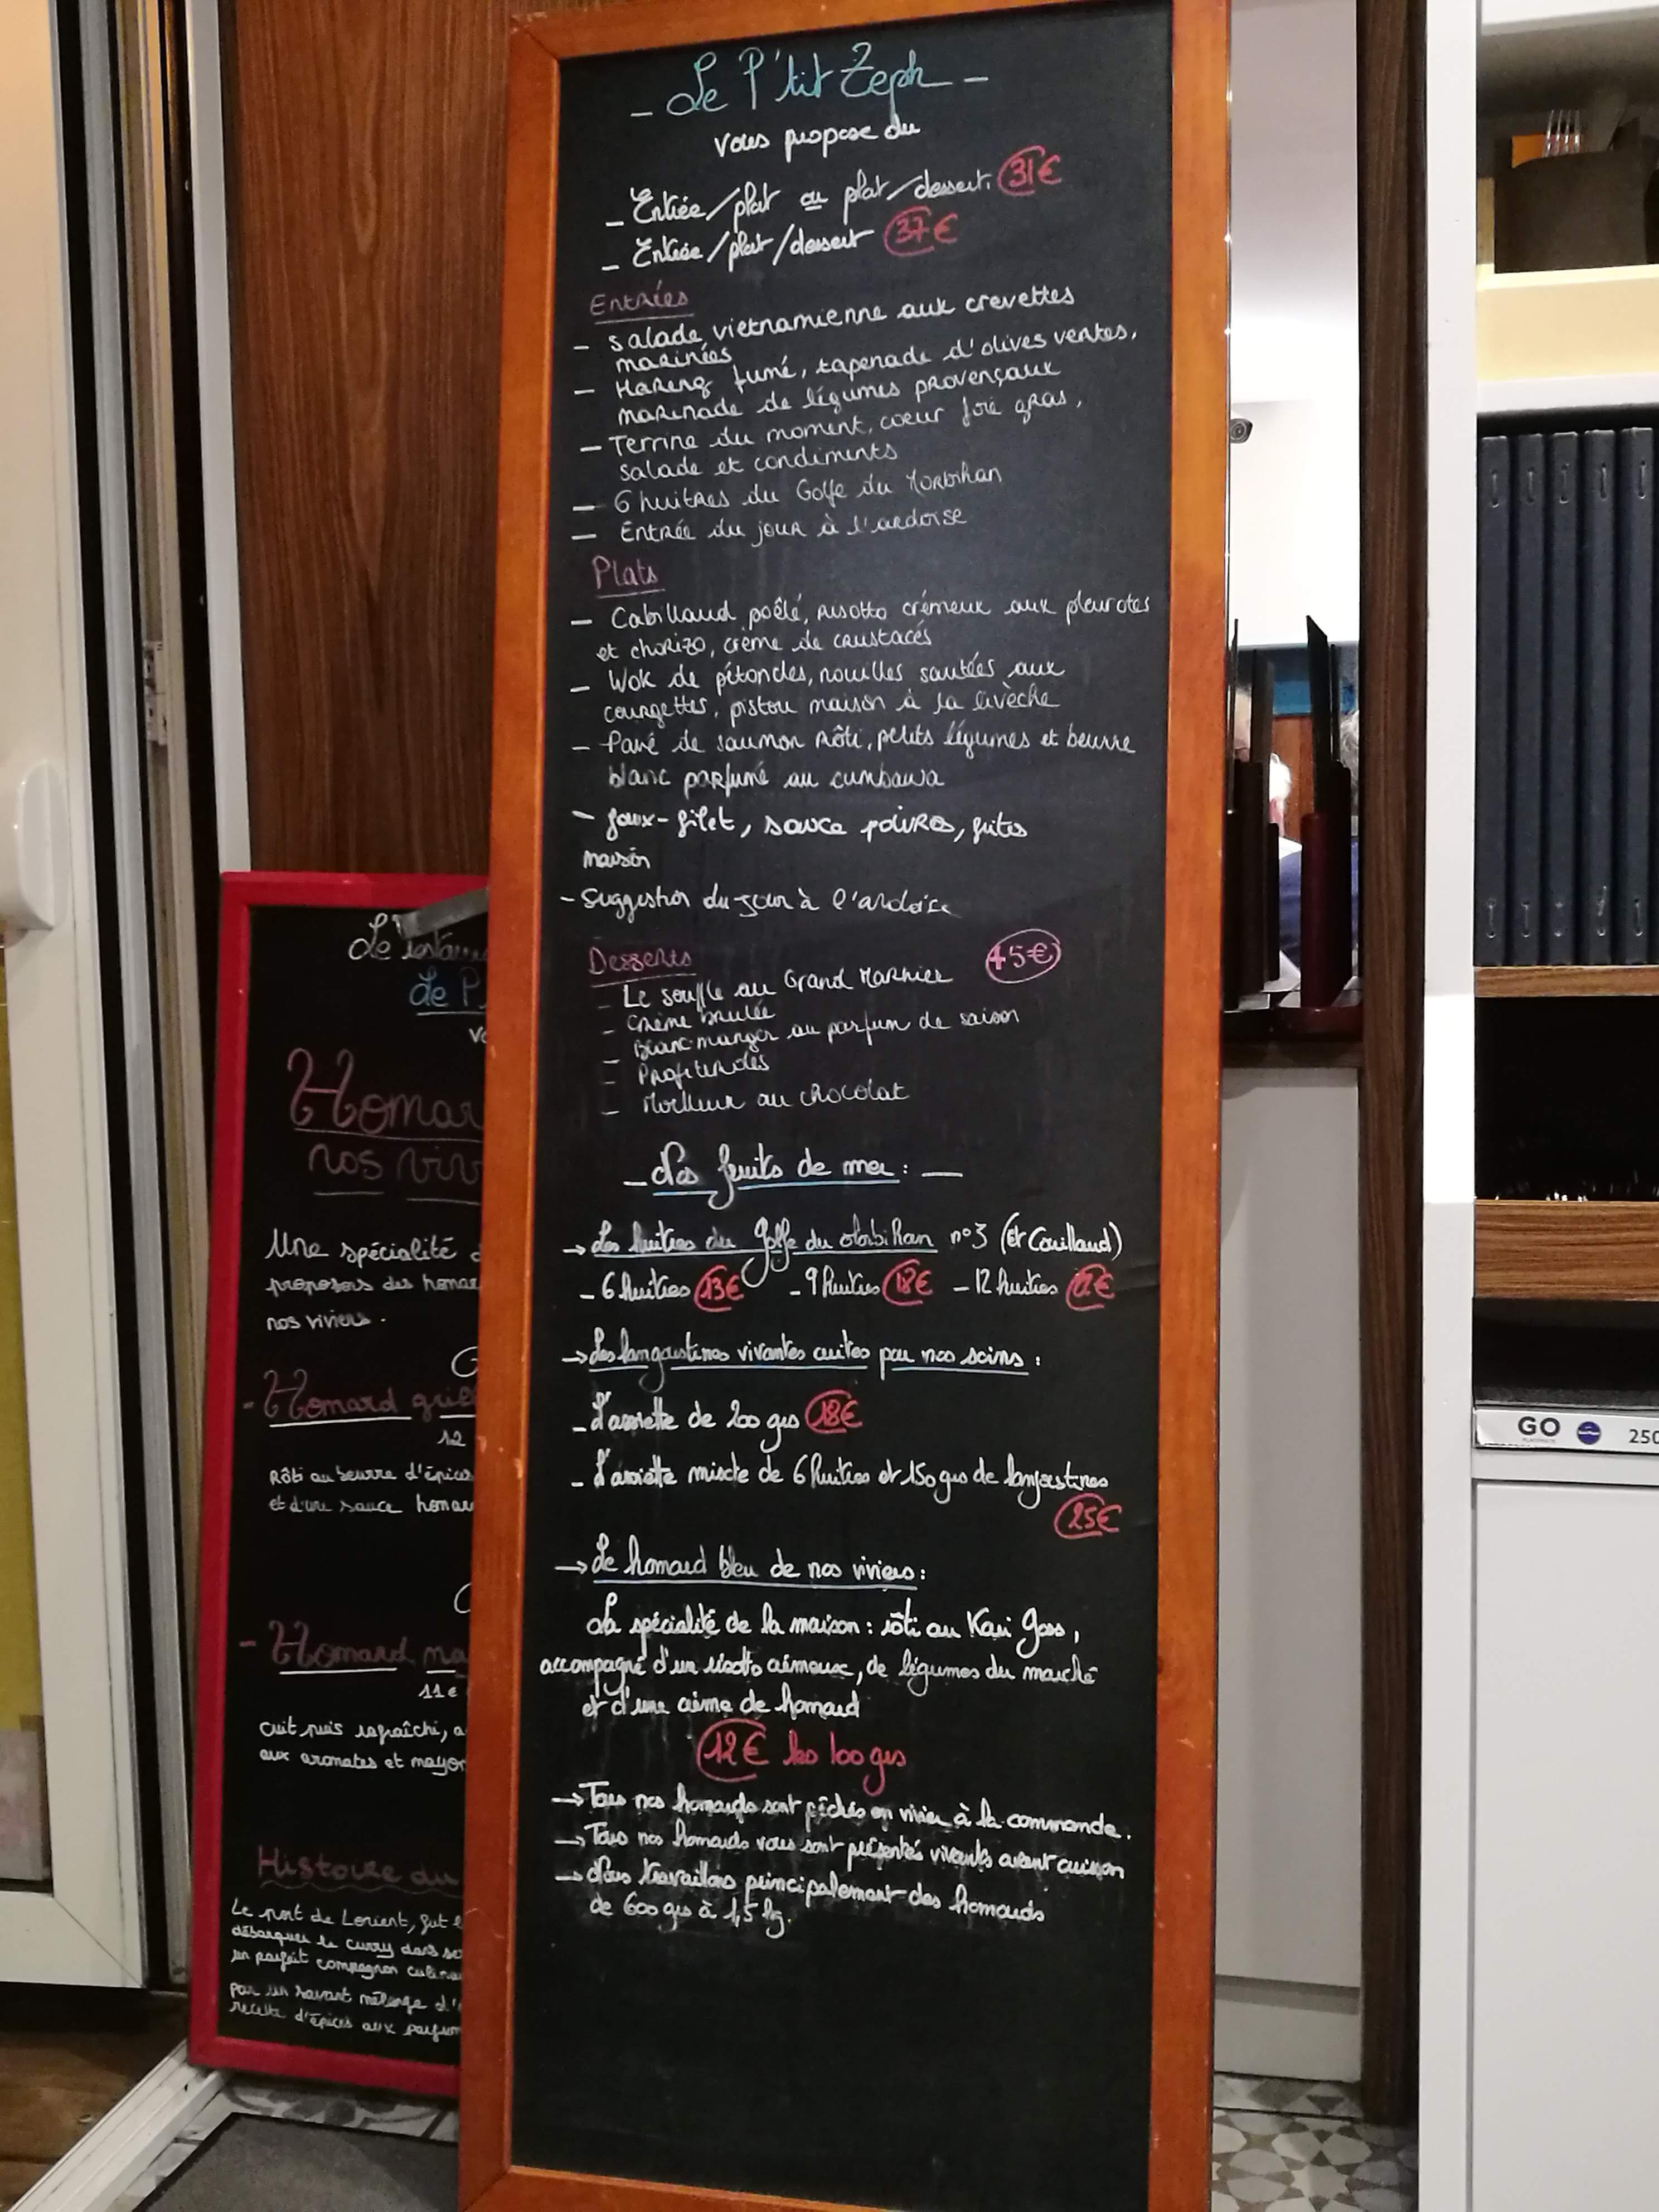 - Le P'tit Zeph -
vous propose du
- Entrée/plat ou plat/dessert. 31€
- Entrée/plat/dessert 37€
Entrées
- Salade vietnamienne aux crevettes
marinées
- Hareng fumé, tapenade d'olives vertes,
marinade de légumes provençaux
- Terrine du moment, coeur foie gras,
salade et condiments
- 6 huitres du Golfe du Morbihan
- Entrée du jour à l'ardoise
Plats
- Cabillaud poêlé, risotto crémeux aux pleurotes
et chorizo, crème de crustacés
- Wok de pétoncles, nouilles sautées aux
courgettes, pistou maison à la livèche
- Pavé de saumon rôti, petits légumes et beurre
blanc parfumé au cumbawa
- faux-filet, sauce poivres, frites
maison
- Suggestion du jour à l'ardoise
Desserts
- Le souffle au Grand Marnier +5€
- Crème brulée
- Blanc-manger au parfum de saison
- Profiteroles
- Moelleux au chocolat
- Les fruits de mer : -
→ Les huitres du golfe du Morbihan n°3 (Ets Couillaud)
- 6 huitres 13€ - 9 huitres 18€ - 12 huitres
→ Les langoustines vivantes cuites par nos soins :
- L'assiette de 200 grs 18€
- L'assiette mixte de 6 huitres et 150 grs de langoustines
25€
→ Le homard bleu de nos viviers :
La spécialité de la maison : rôti au Kari Goss,
accompagné d'un risotto crémeux, de légumes du marché
et d'une crème de homard
12€ les 100 grs
→ Tous nos homards sont pêchés en vivier à la commande.
→ Tous nos homards vous sont présentés vivants avant cuisson
→ Nous travaillons principalement des homards
de 600 grs à 1,5 kg.
Le
de P
vo
Homar
nos viv
Une spécialité
proposons des homar
nos viviers.
- Homard grill
12
Rôti au beurre d'épices
et d'une sauce homar
- Homard na
11€
Cuit puis rafraîchi, a
aux aromates et mayon
Histoire du
Le port de Lorient, fut l
débarquer le curry dans se
un parfait compagnon culina
par un savant mélange d'
recette d'épices aux parfum
GO
250